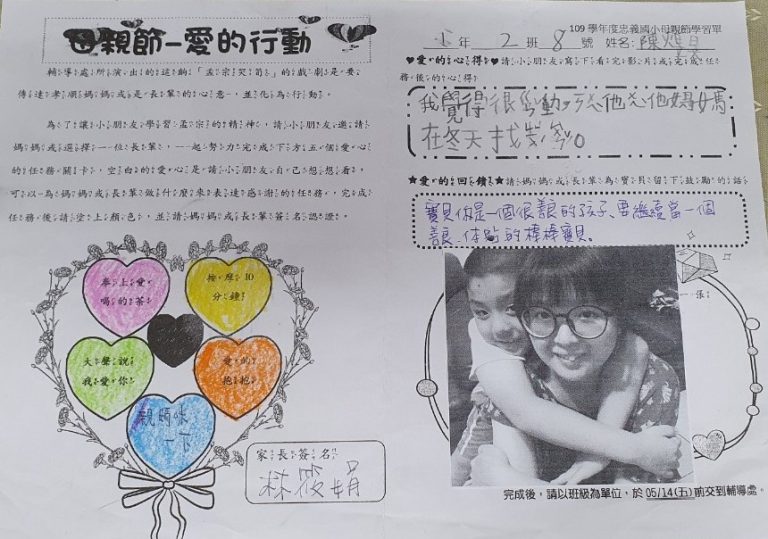 母親節–愛的行動
輔導處所演出的這齣「孟宗哭筍」的戲劇是要
傳達孝順媽媽或是長輩的心意，並化為行動。
為了讓小朋友學習孟宗的精神，請小朋友邀請
媽媽或選擇一位長輩，一起努力完成下方五個愛心
的任務關卡，空白的愛心是請小朋友自己想想看，
可以為媽媽或長輩做什麼來表達感謝的任務，完成
任務後請塗上顏色，並請媽媽或長輩簽名認證。
奉上愛
喝的茶
按摩10
分鐘
大聲說
我愛你
愛的
抱抱
親頰
一下
家長簽名
林筱娟
109 學年度忠義國小母親節學習單
年 2 班 8 號 姓名:陳
♥愛的心得♥請小朋友寫下看完影片或完成任
務後的心得
我覺得很感動
在冬天找
★愛的回饋★請媽媽或長輩為寶貝留下鼓勵的話
寶貝你是一個很善良的孩子、要繼續當一個
善良、体貼的棒棒寶貝。
張
完成後，請以班級為單位，於 05/14(五)前交到輔導處。